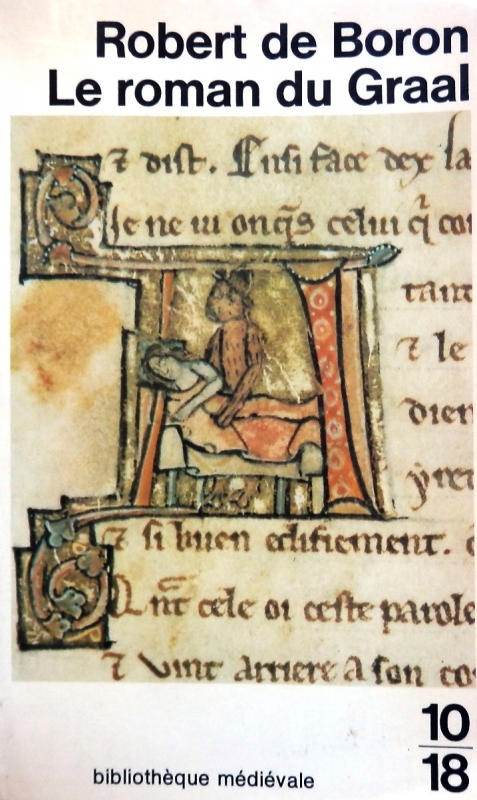 Robert de Boron
Le roman du Graal
⁊ dist. Ensi face dex la
Je ne ui onq̃s celui q̃ con
tant
⁊ le
dien
⁊ si buen edifiement.
Qnt̃ cele oi ceste parole
⁊ vint arriere a son co
10
18
bibliothèque médiévale